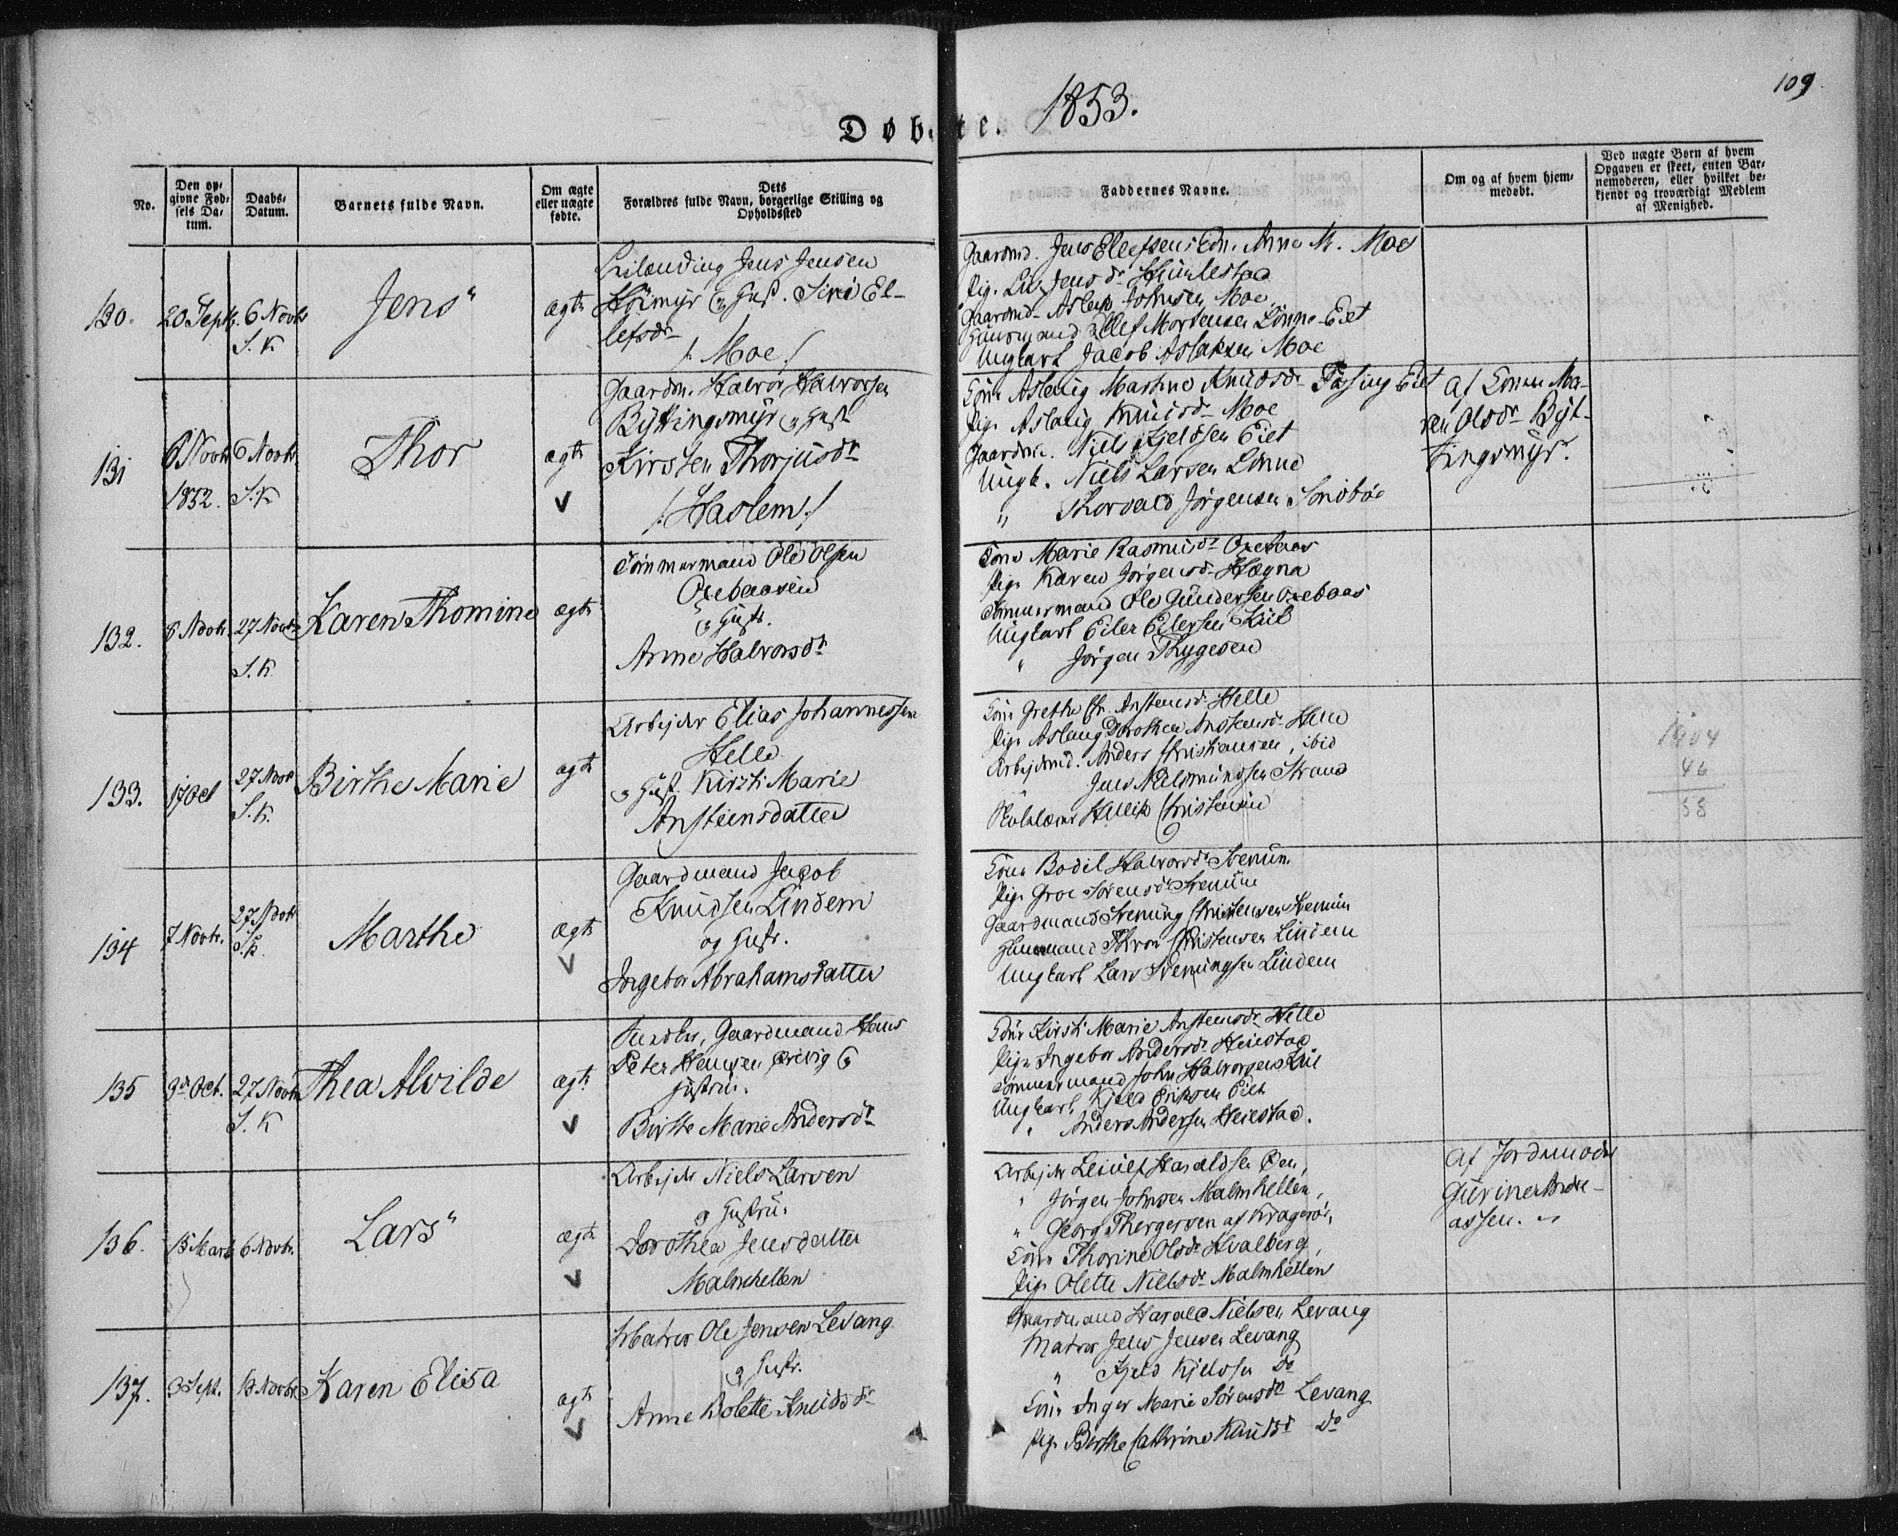 109.
1853.
Døbte.
No.
Den op-
givne Fød-
sels Da-
tum.
Daabs-
Datum.
Barnets fulde Navn.
Om ægte
eller uægte
fødte.
Dets
Forældres fulde Navn, borgerlige Stilling og
Opholdssted
Faddernes Navne.
Om og af hvem hjem-
medøbt.
Ved uægte Børn af hvem
Opgaven er skeet, enten Bar-
nemoderen, eller hvilket be-
kjendt og troværdigt Medlem
af Menighed.
130.
20 Septr.
6 Novbr
S. K
Jens"
ægte
Jens Jensen
og Hust. Siri El-
lefsdr
/: Moe :/
Gaardmd. Jens Ellefsens Kone Anne M. Moe
Gaardmd. Aslak Johnsen Moe
Ellef Mortensen Lønne-Eiet
Ungkarl Jacob Aslaksen Moe
131
6 Novbr
1852.
6 Novbr
S. K
Thor
ægte
V
Gaardm. Halvor Halvorsen
Byttingsmyr og Hust
Kirsten Thorjusdr
/: Haslem :/
Kone Aslaug Marthe Knudsdr Eiet
Pige Aslaug Knudsdr Moe
Gaardm. Niels Kjeldsen Eiet
Ungk. Niels Larsen Lønne
" Thorvald Jørgensen
af Konen Ma-
ren Olsdr Byt-
tingsmyr.
132.
8 Novbr.
27 Novbr
S. K
Karen Thomine
ægte
Tømmermand Ole Olsen
Oxebaasen
og Hustr.
Anne Halvorsdr
Kone Marie Rasmusdr Oxebaas
Pige Karen Jørgensdr Hægna
Tømmermand Ole Gundersen Oxebaas
Ungkarl Eiler Eilersen Kiil
" Jørgen Thygesen
133.
17 Oct
27 Novbr
S. K.
Birthe Marie
ægte
Arbejder Elias Johannessen
Helle
og Hust. Kirsti Marie
Anstensdatter
Kone Grethe Chr. Anstensdr Helle
Pige Aslaug Dorothea Anstensdr Helle
Arbejdsmd. Anders Christiansen, ibid
Jens Nielsmundsen Strand
Skolelærer Hellik Christensen
1904
46
58
134
7 Novbr.
27 Novbr
S. K.
Marthe
ægte
V
Gaardmand Jacob
Knudsen Lindem
og Hustr.
Ingebor Abrahamsdatter
Kone Bodil Halvorsdr
Pige Groe Sørensdr
Gaardmand Svenung Christensen
Huusmand Thron Christensen Lindem
Ungkarl Lars Svenungsen Lindem
135
9de Oct.
27 Novbr
S. K
Thea Alvilde
ægte
V
Gaardmand Hans
Peter Hansen og
Hustru.
Birthe Marie Andersdr
Kone Kirsti Marie Anstensdr Helle
Pige Ingebor Andersdr Heiestad
Tømmermand John Halvorsen Kiil
Ungkarl Kjeld Eriksen Eiet
" Anders Andersen Heiestad.
136.
15 Marts
6 Novbr.
Lars"
ægte
V
Arbejder Niels Larsen
og Hustru
Dorothea Jensdatter
Malmhellen
Arbejder Leiulf Haraldsen Øen,
" Jørgen Johnsen Malmhellen,
" Georg Thergersen af Kragerø,
Kone Thorine Olsdr Hvalberg,
Pige Olette Nielsdr Malmhellen
af Jordemoder
Gurine Andre-
assen.
137.
3 Sept.
13 Novbr
Karen Elisa
ægte
V
Matros Ole Jensen Levang
og Hustr.
Anne Bolette Knudsdr
Gaardmand Harald Nielsen Levang
Matros Jens Jensen Levang
" Kjeld Kjeldsen Do
Kone Inger Marie Sørensdr Levang
Pige Birthe Cathrine Knudsd Do